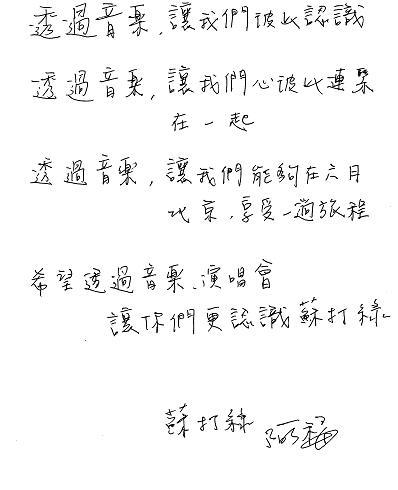 透過音樂,讓我們彼此認識
透過音樂,讓我們心彼此連繫
在一起
透過音樂,讓我們能夠在六月
北京,享受一趟旅程
希望透過音樂、演唱會
讓你們更認識蘇打綠
蘇打綠 阿福